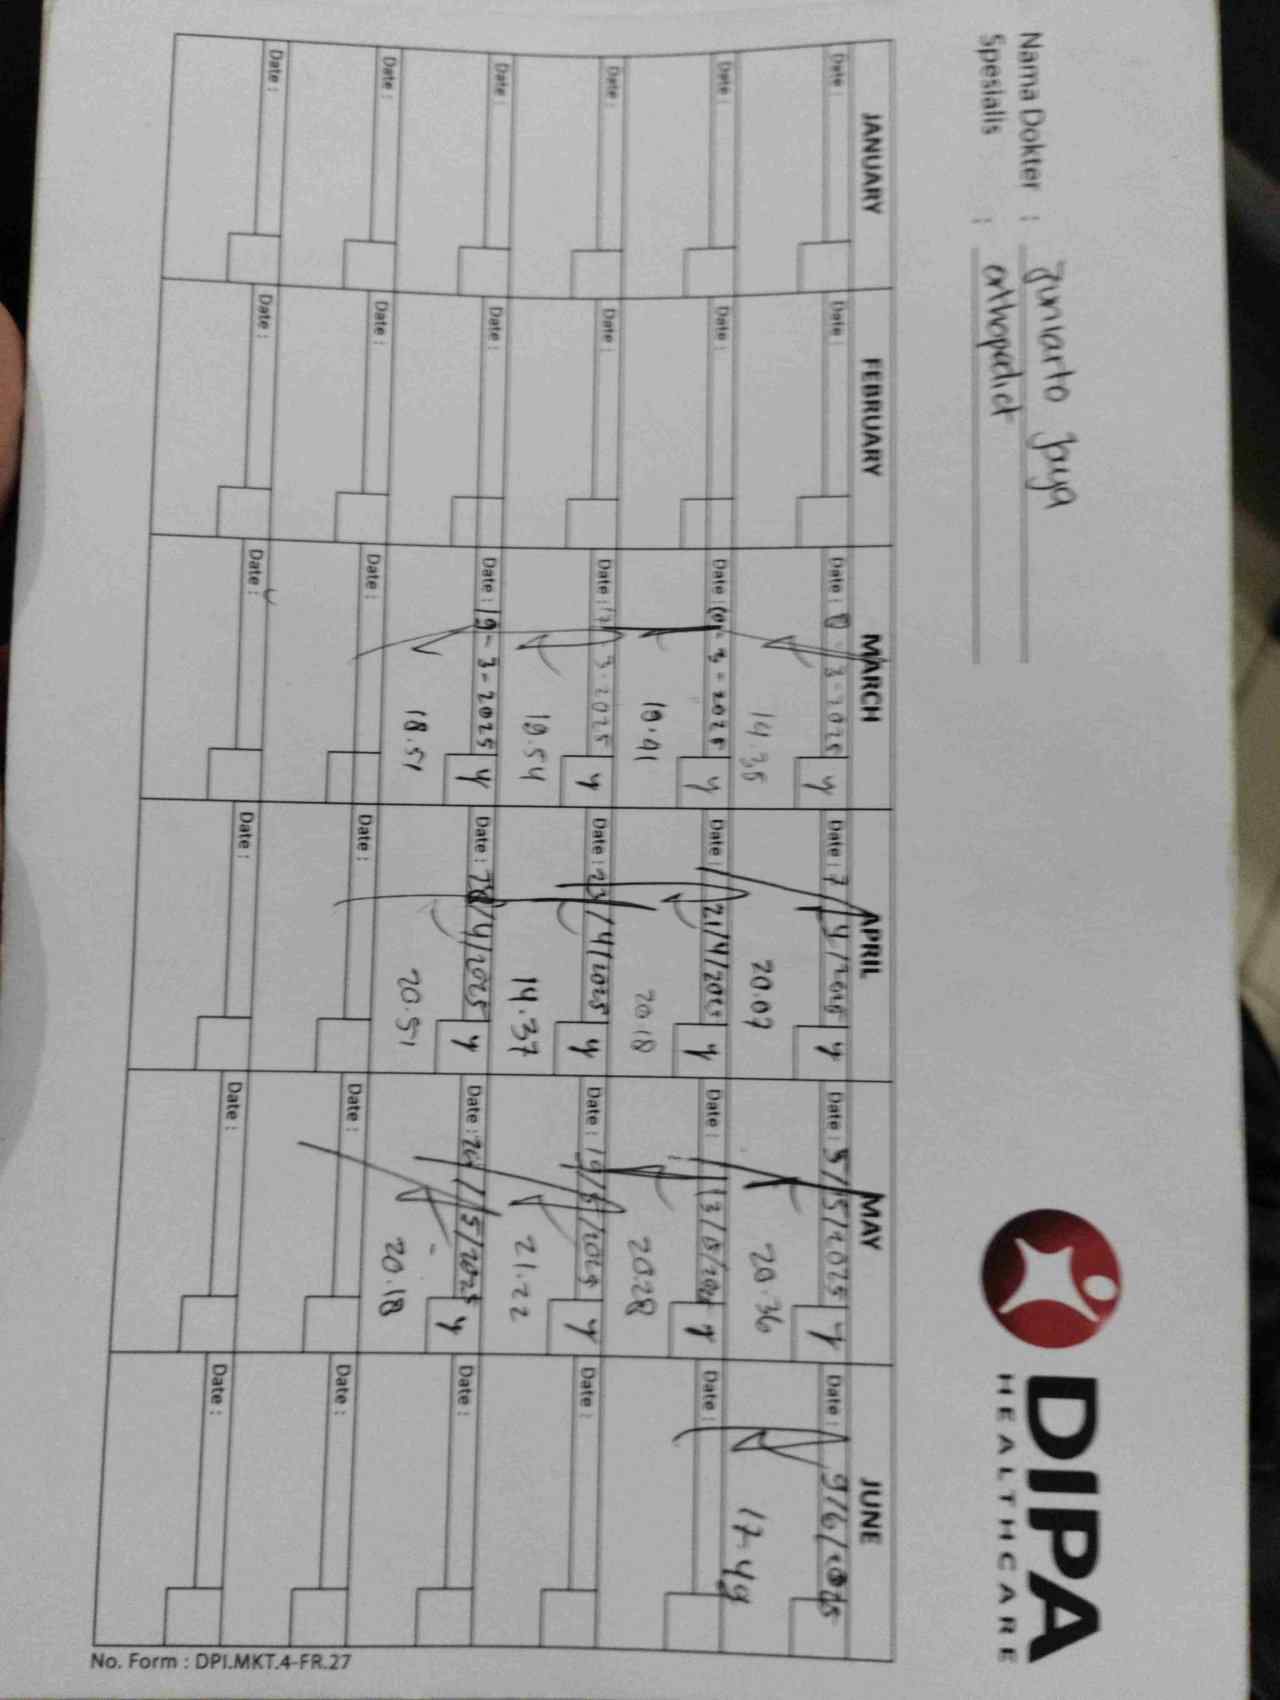 Nama Dokter : Juniarto Jaya
Spesialis : orthopedict
DIPA
HEALTHCARE
JANUARY FEBRUARY MARCH APRIL MAY JUNE
Date : Date : Date : 3-2025 y Date : 7/4/2025 y Date : 5/5/2025 y Date : 9/6/2025
14.35 20.07 20.36 17.49
Date : Date : Date : 10-3-2025 y Date : 21/4/2025 y Date : 13/5/2025 y Date :
19.41 20.18 20.28
Date : Date : Date : 17-3-2025 y Date : 23/4/2025 y Date : 19/5/2025 y Date :
19.54 14.37 21.22
Date : Date : Date : 19-3-2025 y Date : 28/4/2025 y Date : 26/5/2025 y Date :
18.51 20.51 20.18
Date : Date : Date : Date : Date : Date :
Date : Date : Date : Date : Date : Date :
No. Form : DPI.MKT.4-FR.27